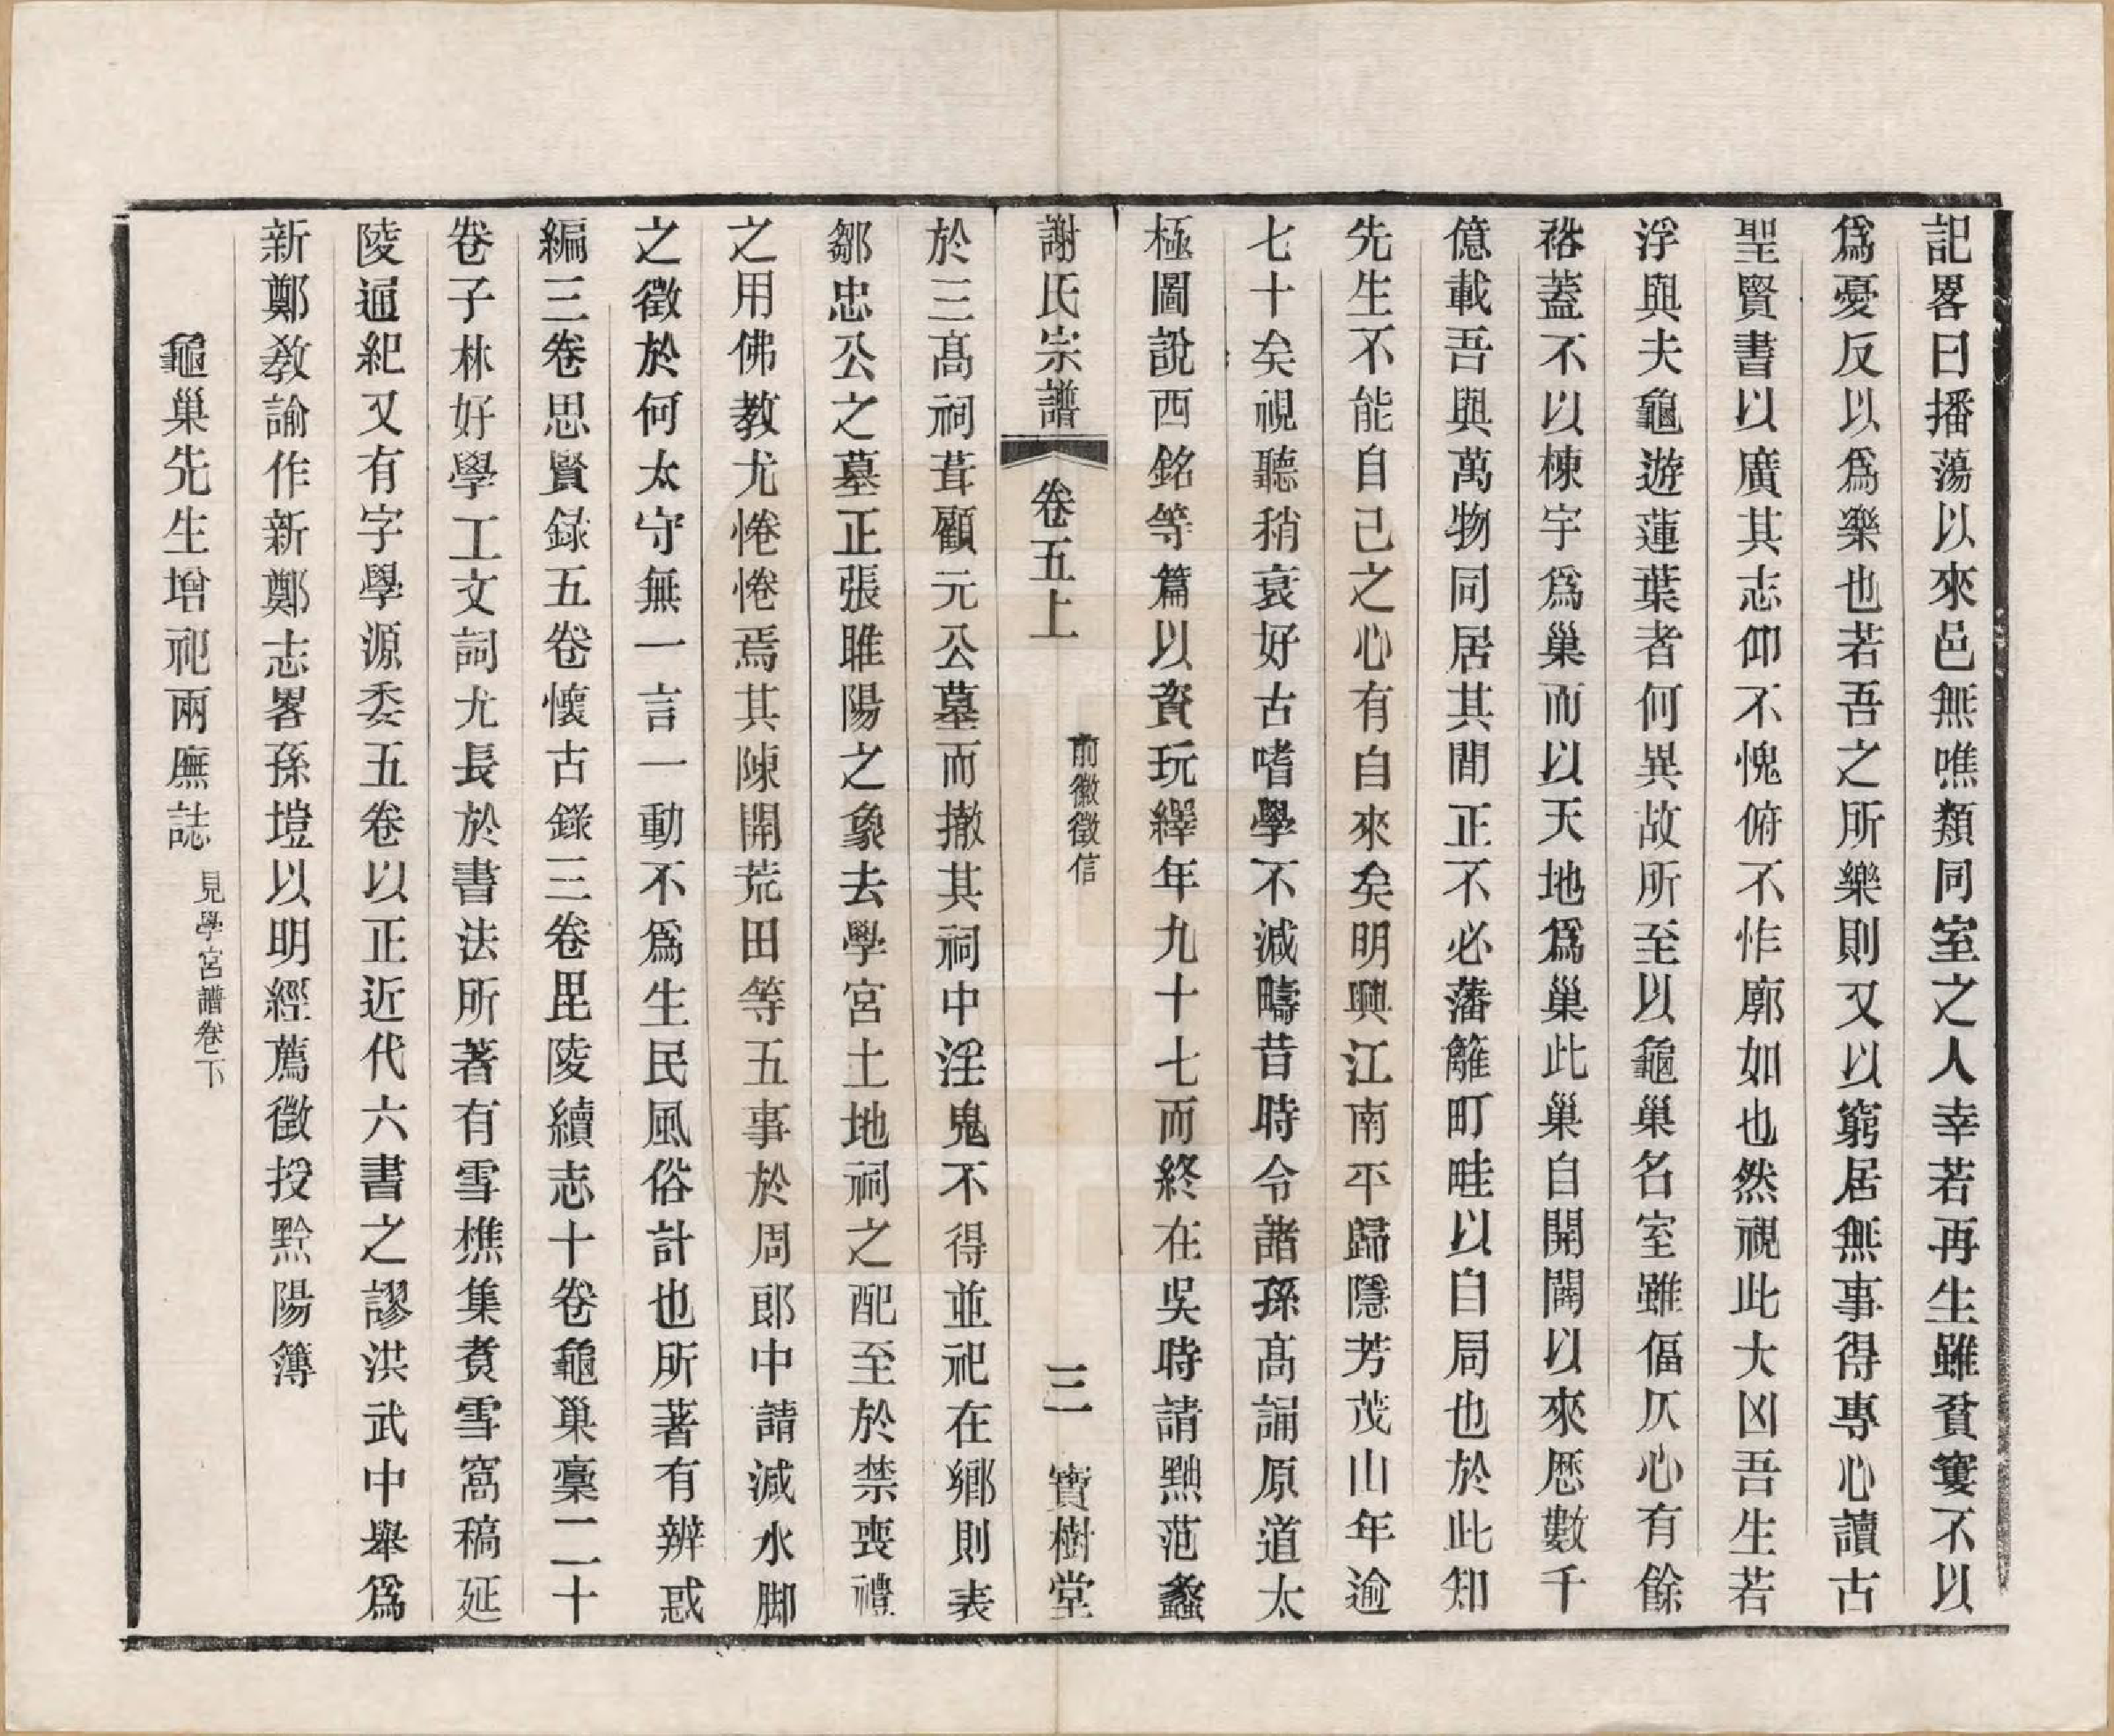 記畧曰播蕩以來邑無噍類同室之人幸若再生雖貧窶不以
爲憂反以爲樂也若吾之所樂則又以窮居無事得專心讀古
聖賢書以廣其志仰不愧俯不怍廓如也然視此大凶吾生若
浮與夫龜遊蓮葉者何異故所至以龜巢名室雖偪仄心有餘
裕蓋不以棟宇爲巢而以天地爲巢此巢自開闢以來歷數千
億載吾與萬物同居其間正不必藩籬町畦以自局也於此知
先生不能自己之心有自來矣明興江南平歸隱芳茂山年逾
七十矣視聽稍衰好古嗜學不減疇昔時令諸孫高誦原道太
極圖說西銘等篇以資玩繹年九十七而終在吳時請黜范蠡
謝氏宗譜 卷五上 前徽徵信 三 寶樹堂
於三高祠葺顧元公墓而撤其祠中淫鬼不得並祀在鄉則表
鄒忠公之墓正張睢陽之象去學宮土地祠之配至於禁喪禮
之用佛教尤惓惓焉其陳開荒田等五事於周郎中請減水脚
之徵於何太守無一言一動不爲生民風俗計也所著有辨惑
編三卷思賢錄五卷懷古錄三卷毘陵續志十卷龜巢稾二十
卷子林好學工文詞尤長於書法所著有雪樵集煑雪窩稿延
陵通紀又有字學源委五卷以正近代六書之謬洪武中舉爲
新鄭教諭作新鄭志畧孫塏以明經薦徵投黔陽簿
龜巢先生增祀兩廡誌 見學宮譜卷下